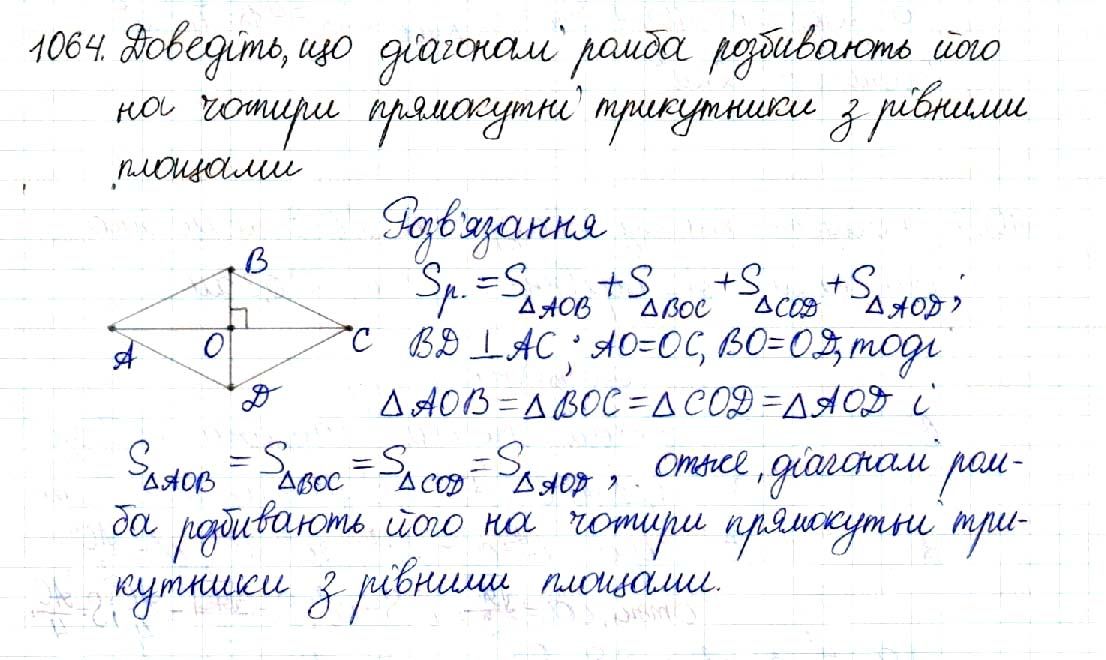 1064. Доведіть, що діагоналі ромба розбивають його
на чотири прямокутні трикутники з рівними
площами
Розв'язання
B
A
O
C
D
Sр. = S△AOB + S△BOC + S△COD + S△AOD;
BD ⊥ AC; AO=OC, BO=OD, тоді
△AOB = △BOC = △COD = △AOD і
S△AOB = S△BOC = S△COD = S△AOD, отже, діагоналі ром-
ба розбивають його на чотири прямокутні три-
кутники з рівними площами.